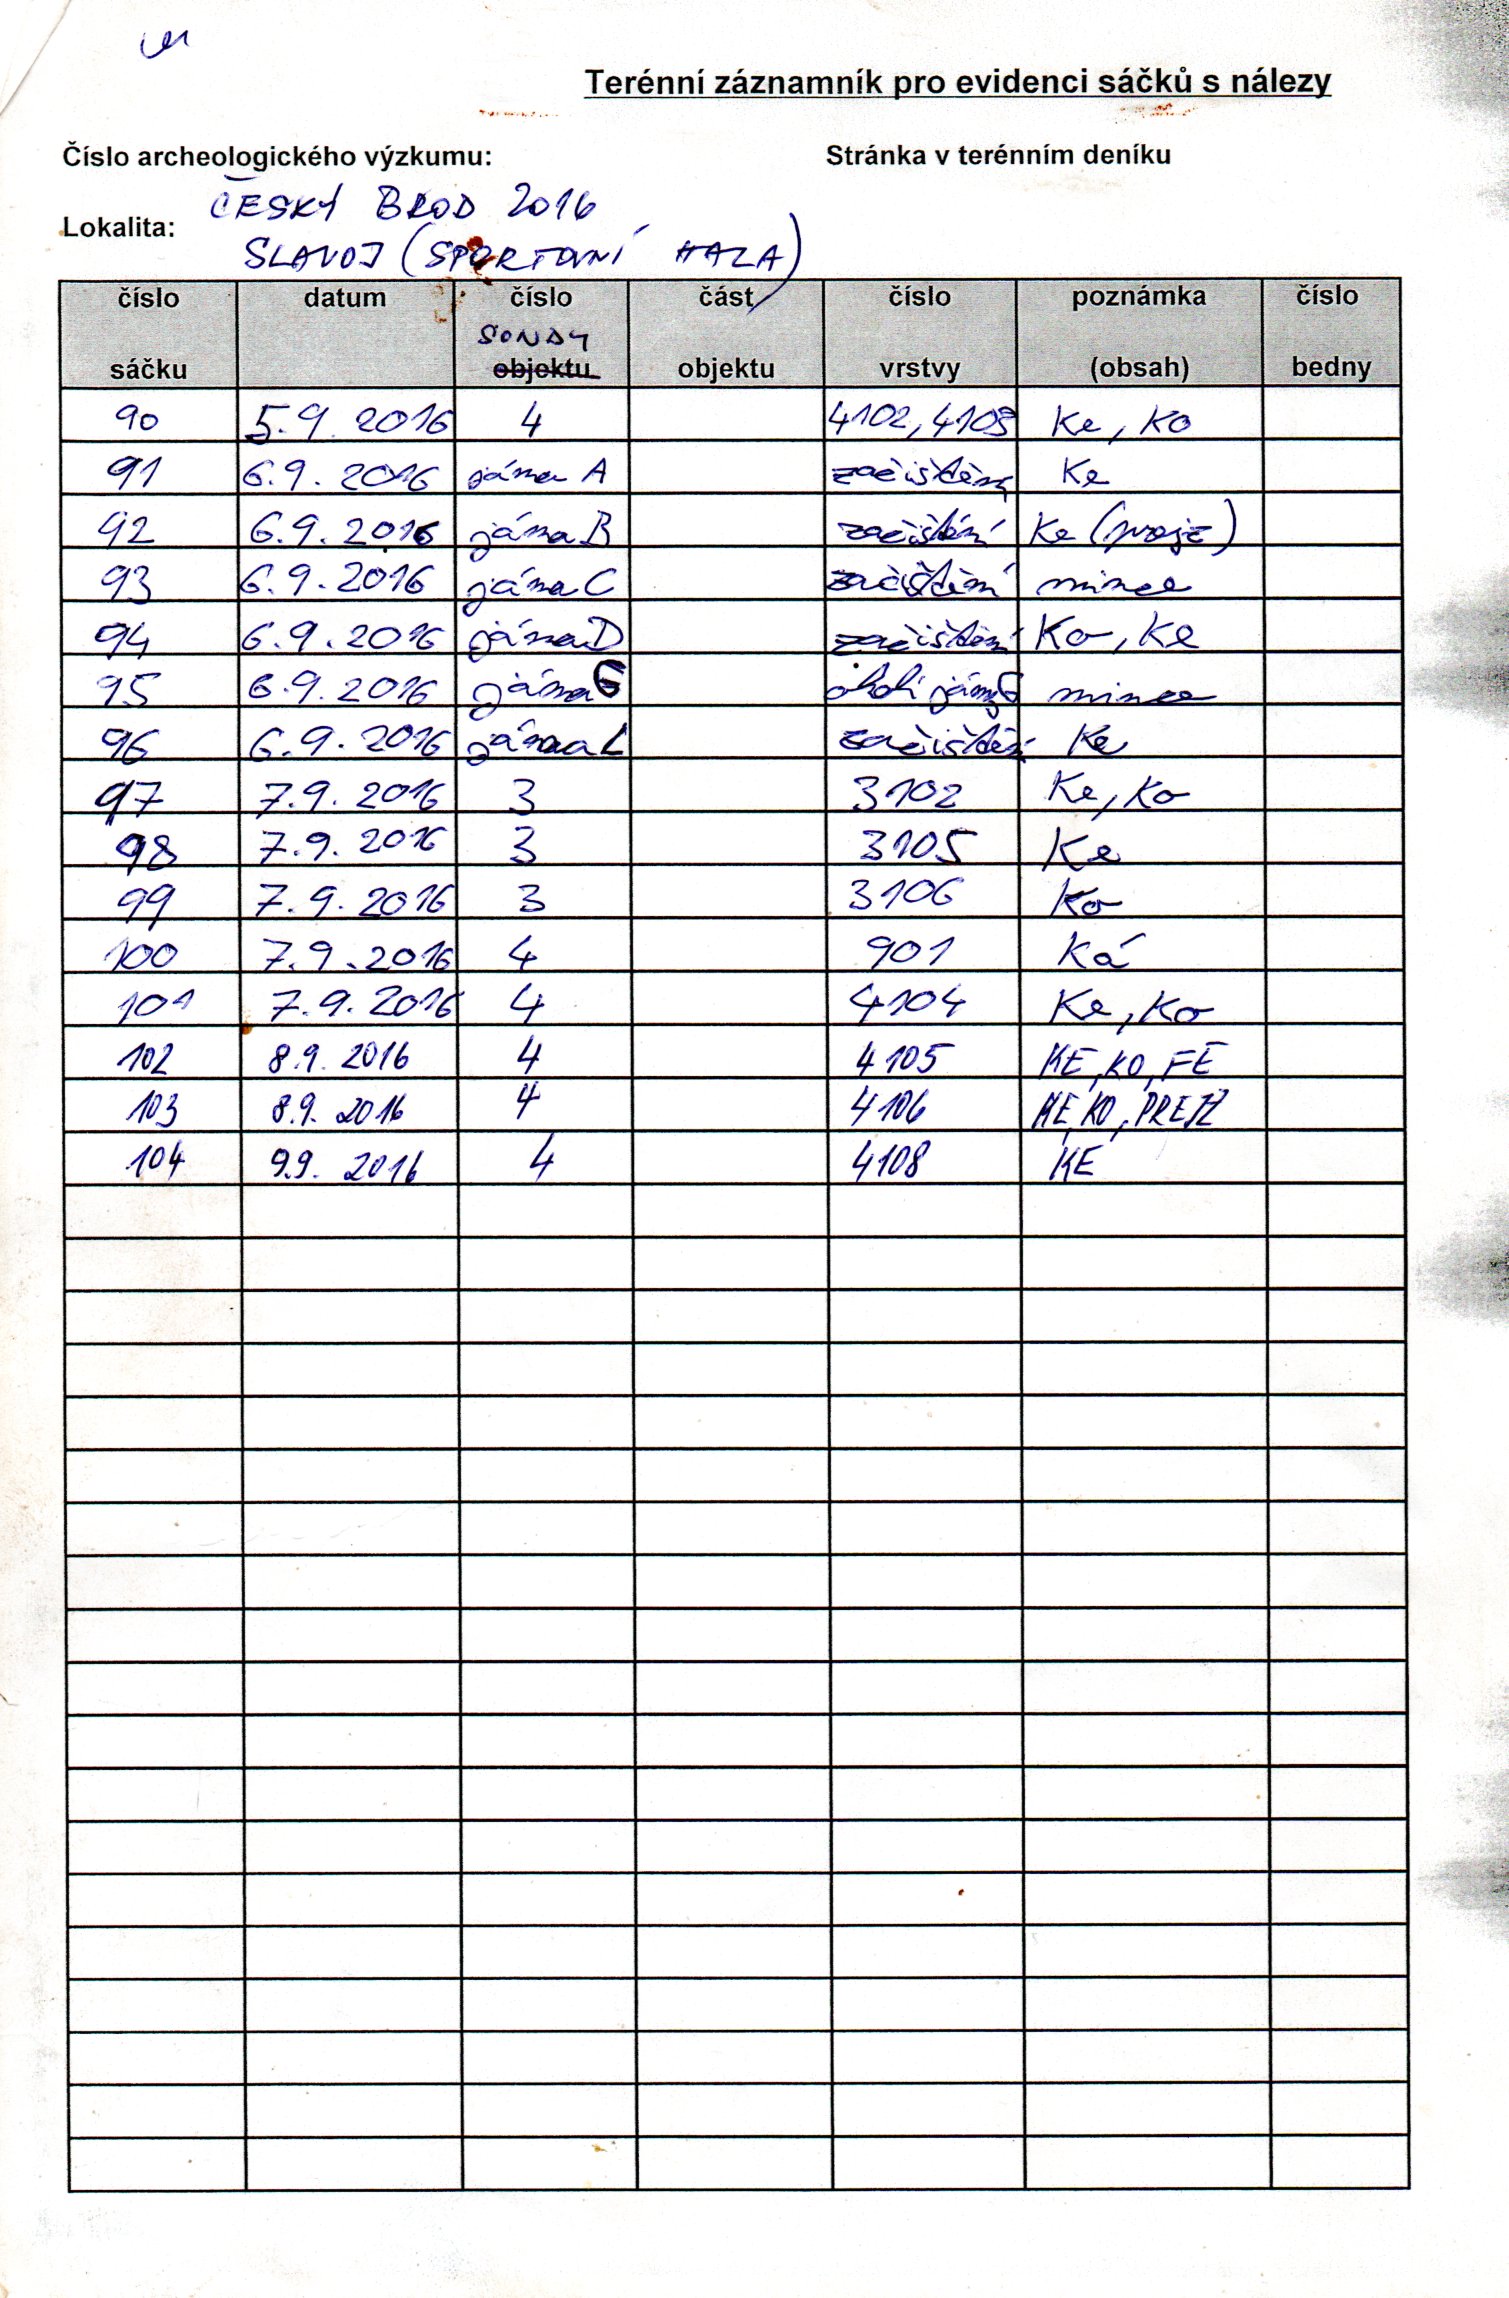 Terénní záznamník pro evidenci sáčků s nálezy
Číslo archeologického výzkumu: Stránka v terénním deníku
ČESKÝ BROD 2016
Lokalita:
SLAVOJ (SPORTOVNÍ HALA)
číslo datum číslo část číslo poznámka číslo
SONDY
sáčku objektu objektu vrstvy (obsah) bedny
90 5.9.2016 4 4102, 4103 Ke, Ko
91 6.9.2016 jáma A začištění Ke
92 6.9.2016 jáma B začištění Ke (prejz)
93 6.9.2016 jáma C začištění mince
94 6.9.2016 jáma D začištění Ko, Ke
95 6.9.2016 jáma G okolí jámy G mince
96 6.9.2016 jáma L začištění Ke
97 7.9.2016 3 3102 Ke, Ko
98 7.9.2016 3 3105 Ke
99 7.9.2016 3 3106 Ko
100 7.9.2016 4 901 Ká
101 7.9.2016 4 4104 Ke, Ko
102 8.9.2016 4 4105 KE, KO, FE
103 8.9.2016 4 4106 KE, KO, PREJZ
104 9.9.2016 4 4108 KE